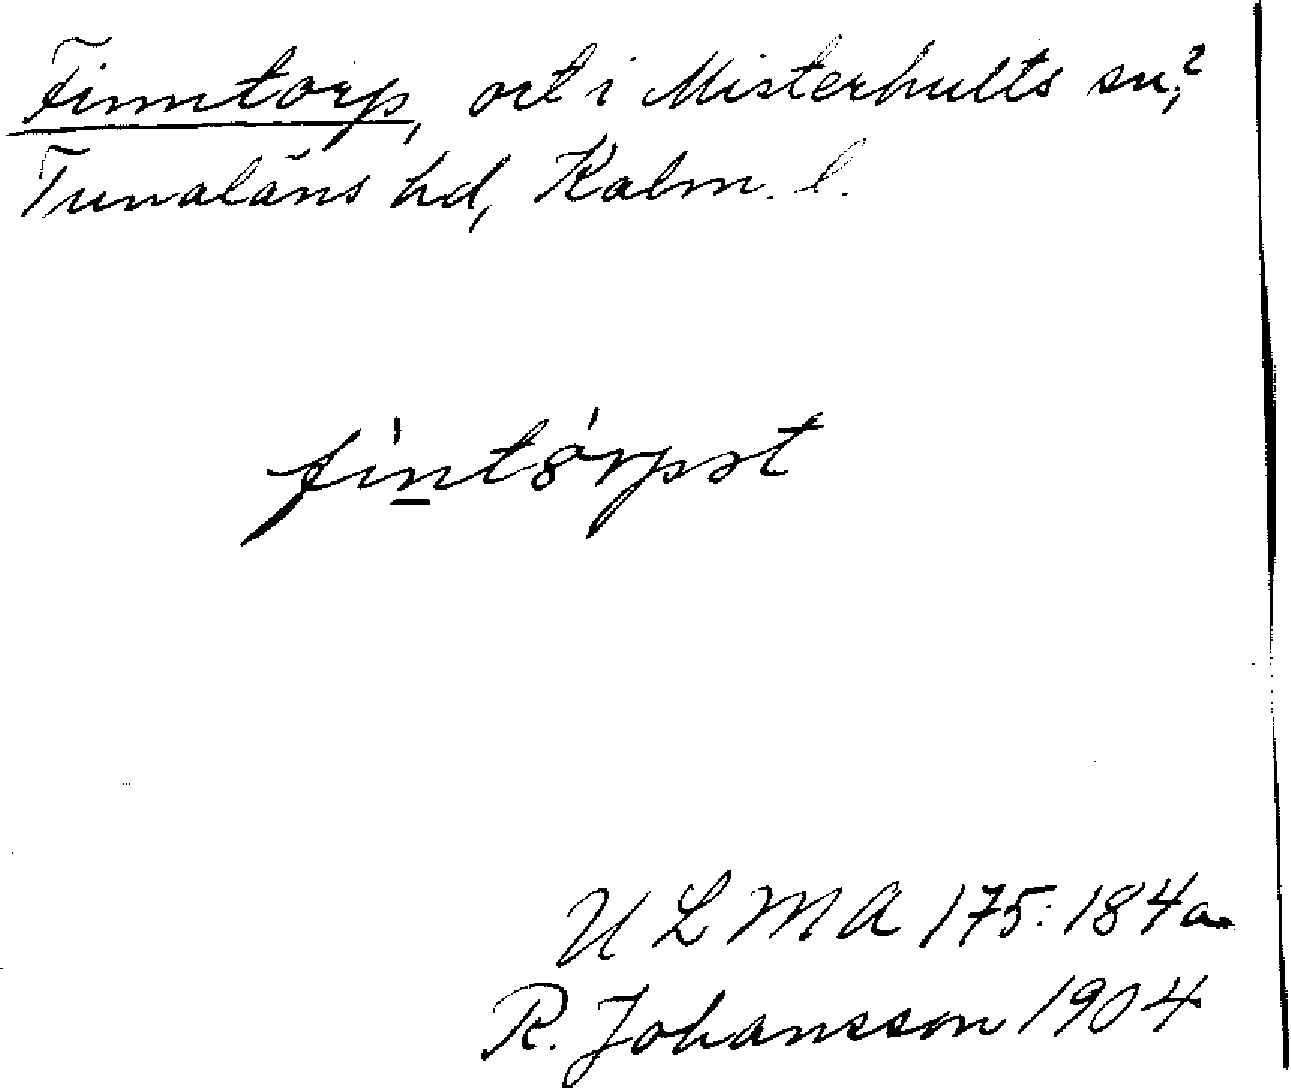 Finntorp, ort i Misterhults sn,?
Tunaläns hd, Kalm. l.
fìntórpət
ULMA 175:184a
R. Johansson 1904